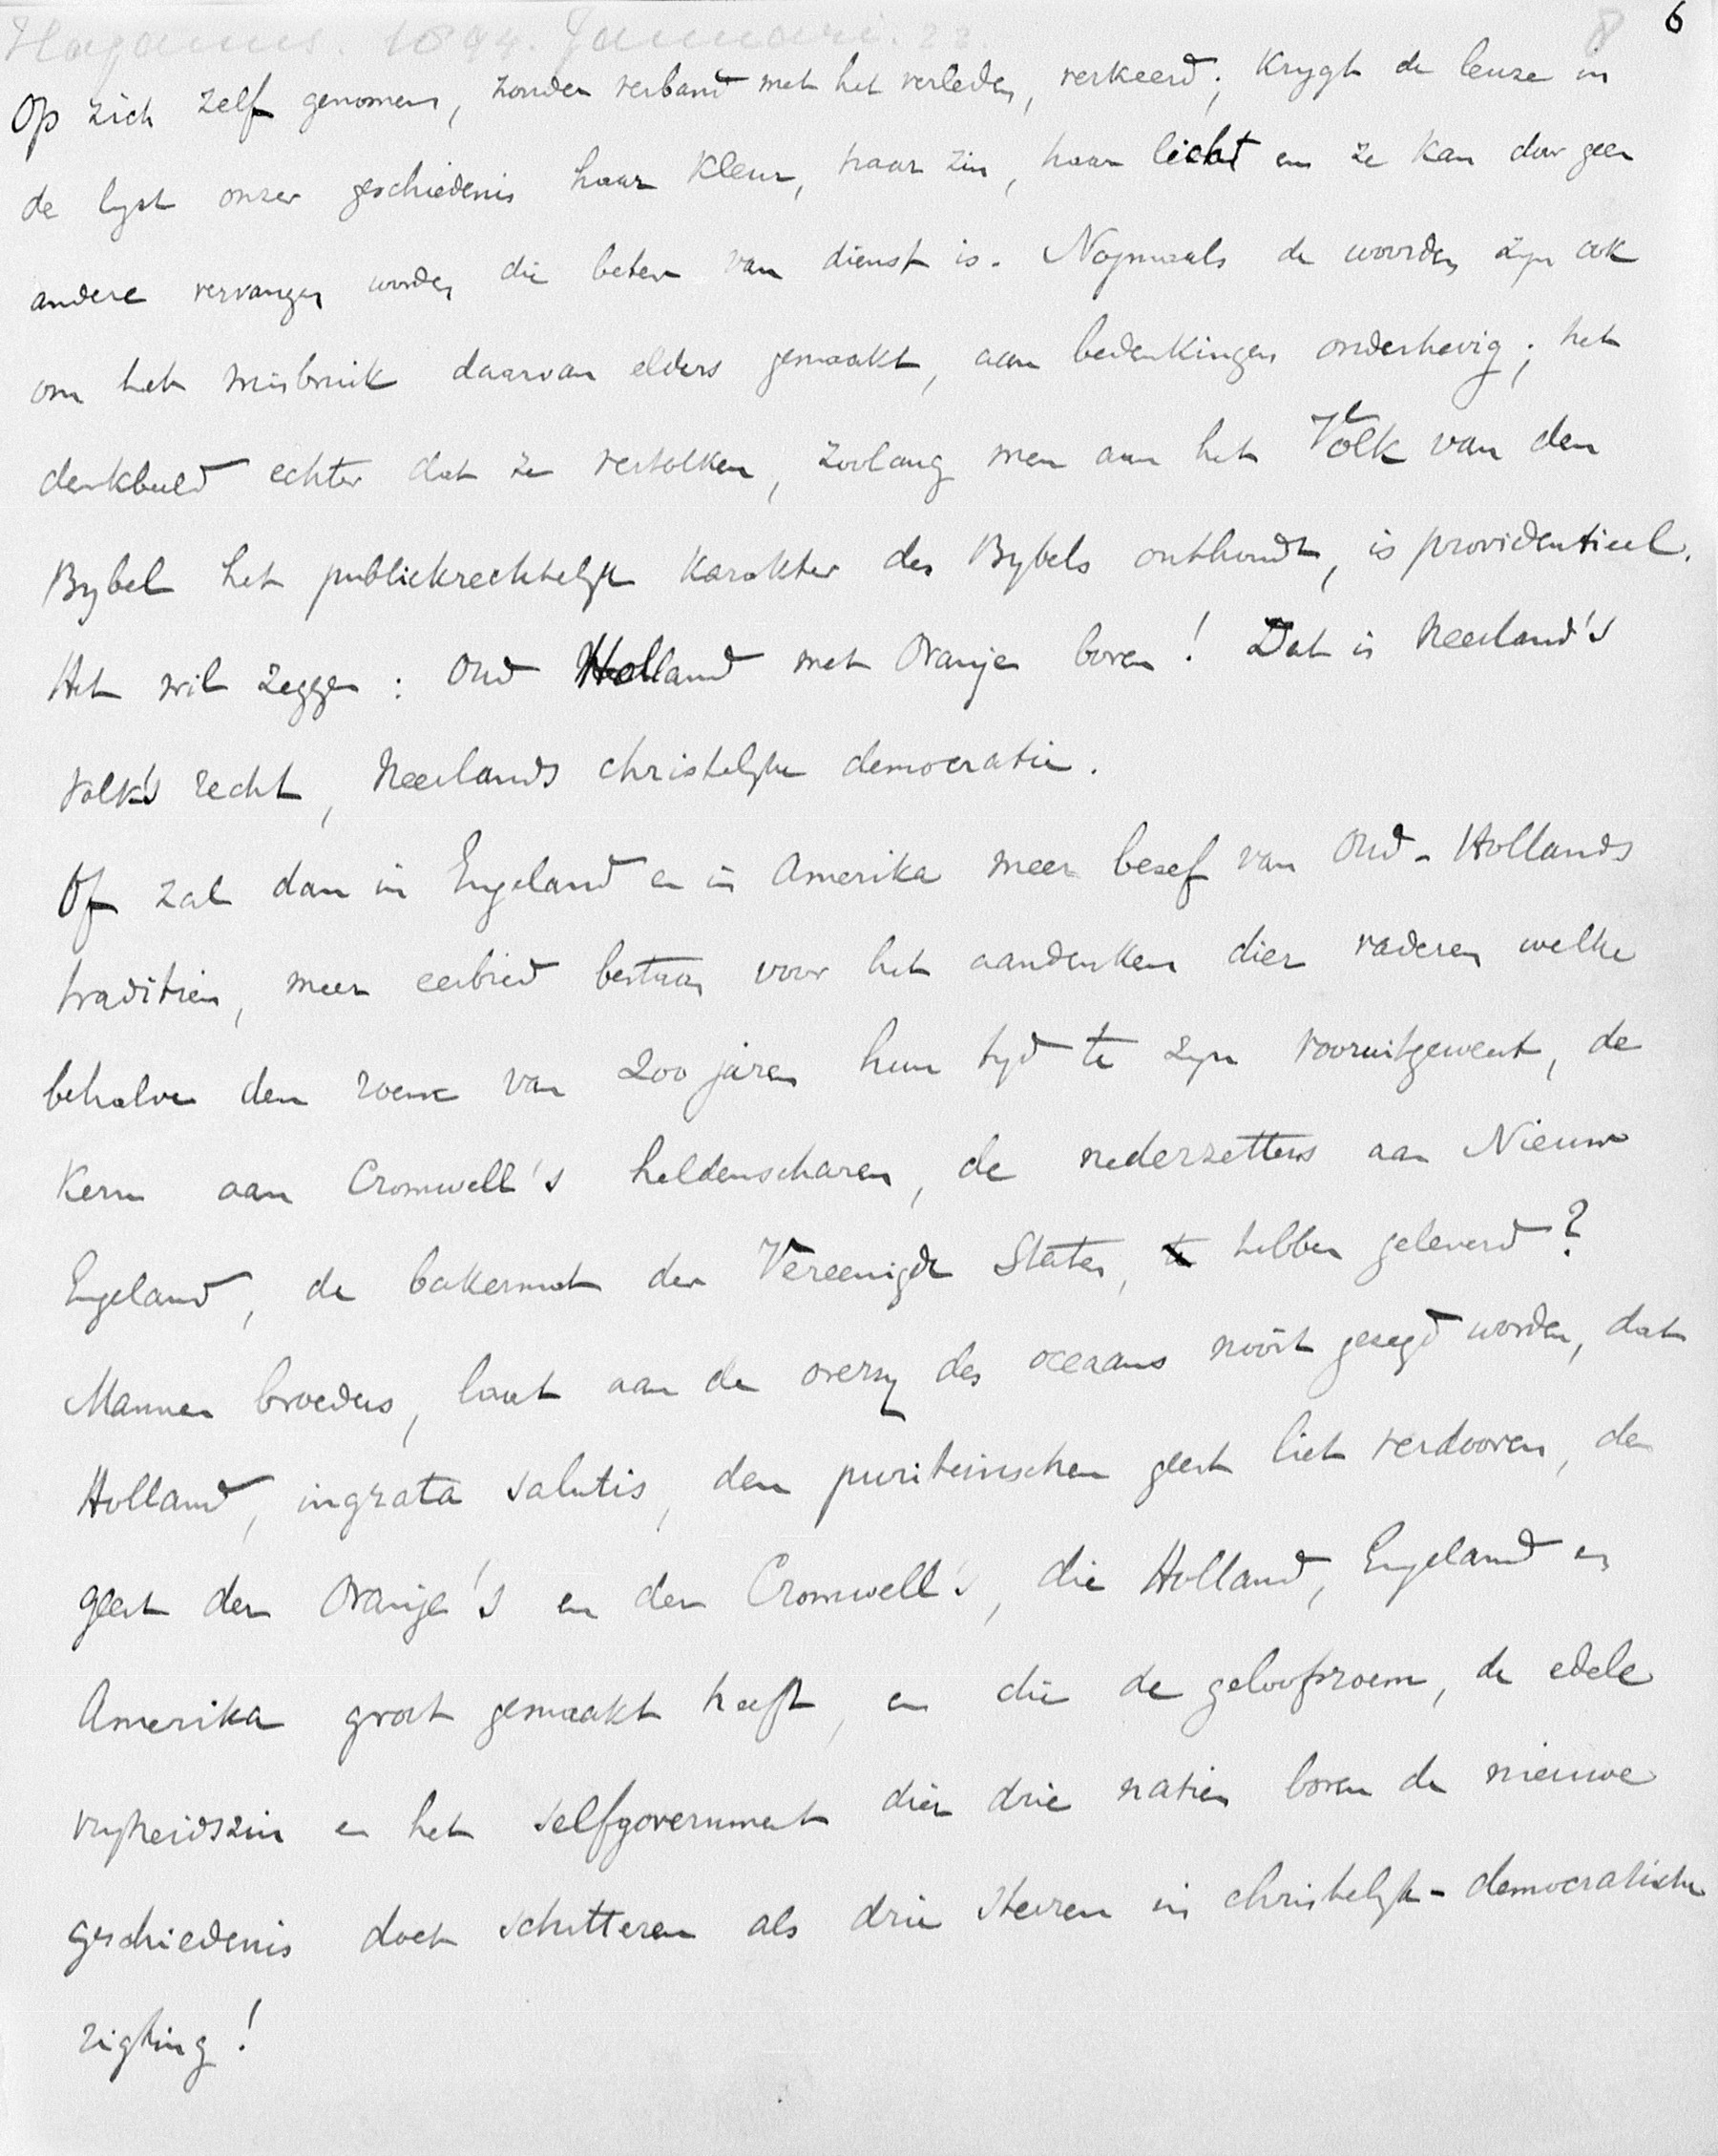 Haganus. 1894. Januari. 22. 8 6
Op zich zelf genomen, zonder verband met het verleden, verkeerd; krygt de leuze in
de lyst onzer geschiedenis haar kleur, haar zin, haar licht en ze kan door geen
andere vervangen worden die beter van dienst is. Nogmaals de woorden zyn ook
om het misbruik daarvan elders gemaakt, aan bedenkingen onderhevig; het
denkbeeld echter dat ze vertolken, zoolang men aan het Volk van den
Bybel het publiekrechtelyk karakter des Bybels onthoudt, is providentieel.
Het wil zeggen: Oud Holland met Oranje boven! Dat is Neerland's
volk's recht, Neerlands christelyke democratie.
Of zal dan in Engeland en in Amerika meer besef van Oud-Hollands
tradities, meer eerbied bestaan voor het aandenken dier vaderen welke
behalve den roem van 200 jaren hun tyd te zyn vooruitgeweest, de
kern aan Cromwell's heldenscharen, de nederzetters aan Nieuw
Engeland, de bakermat der Vereenigde Staten, te hebben geleverd?
Mannen broeders, laat aan de overzy des oceaans nóóit gezegd worden, dat
Holland, ingrata salutis, den puriteinschen geest liet verdooven, den
geest der Oranje's en der Cromwell's, die Holland, Engeland en
Amerika groot gemaakt heeft, en die de geloofsroem, de edele
vryheidszin en het selfgovernment dier drie natien boven de nieuwe
geschiedenis doet schitteren als drie sterren in christelyk-democratische
rigting!